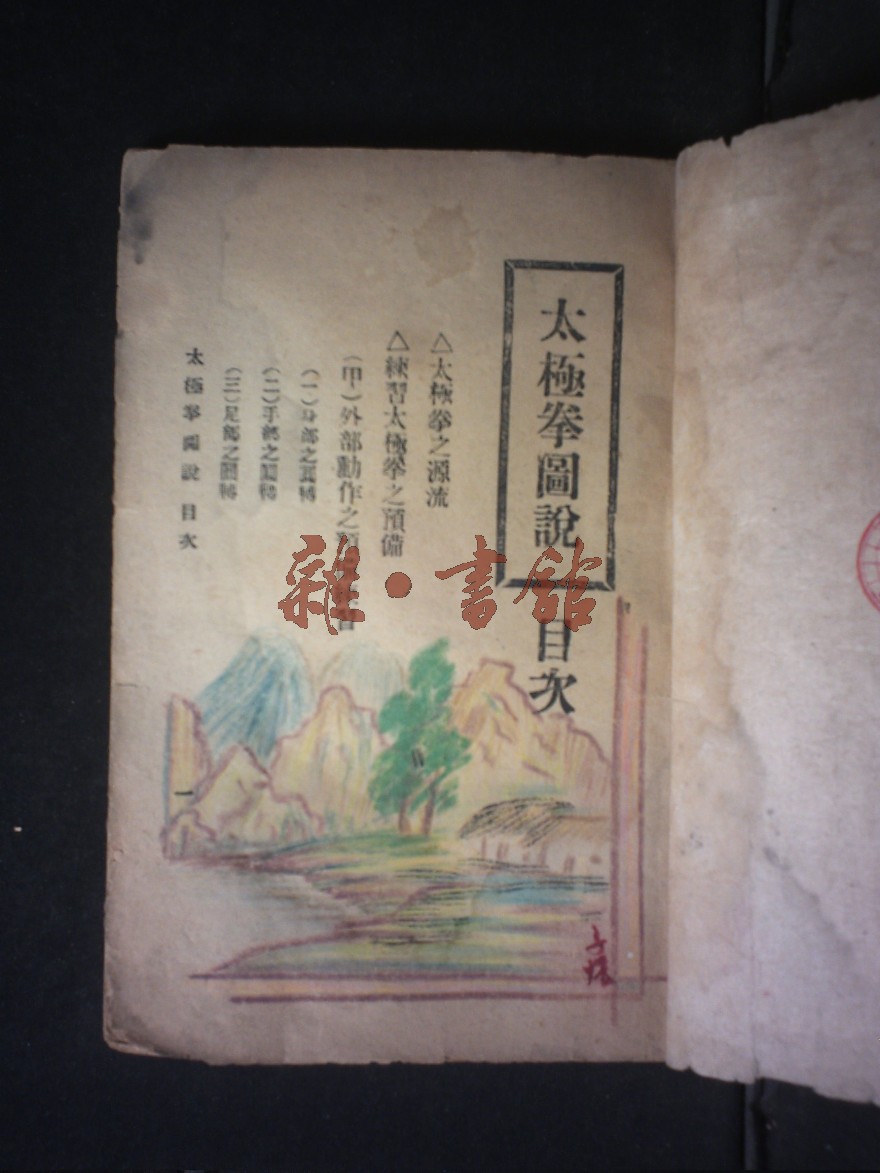 太極拳圖說 目次
△太極拳之源流
△練習太極拳之預備
(甲)外部動作之預
(一)身部之
(二)手部之
(三)足部之
太極拳圖說 目次
一
雜·書舘